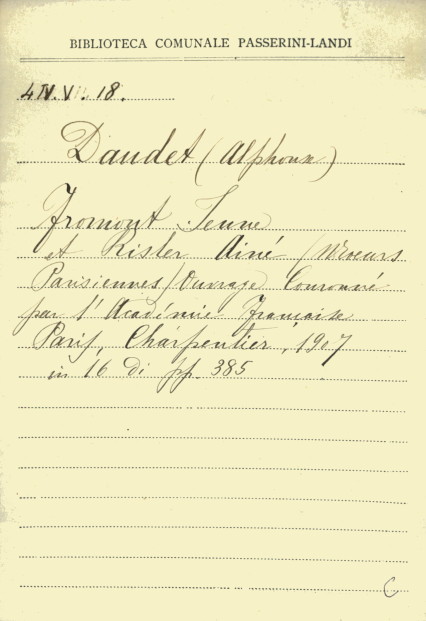 BIBLIOTECA COMUNALE PASSERINI-LANDI
4 IV. V. 18.
Daudet (Alphonse)
Fromont Jeune
et Risler Ainé (Moeurs
Parisiennes) Ouvrage Couronné
par l'Académie Française
Paris, Charpentier, 1907
in 16 di pp. 385
C